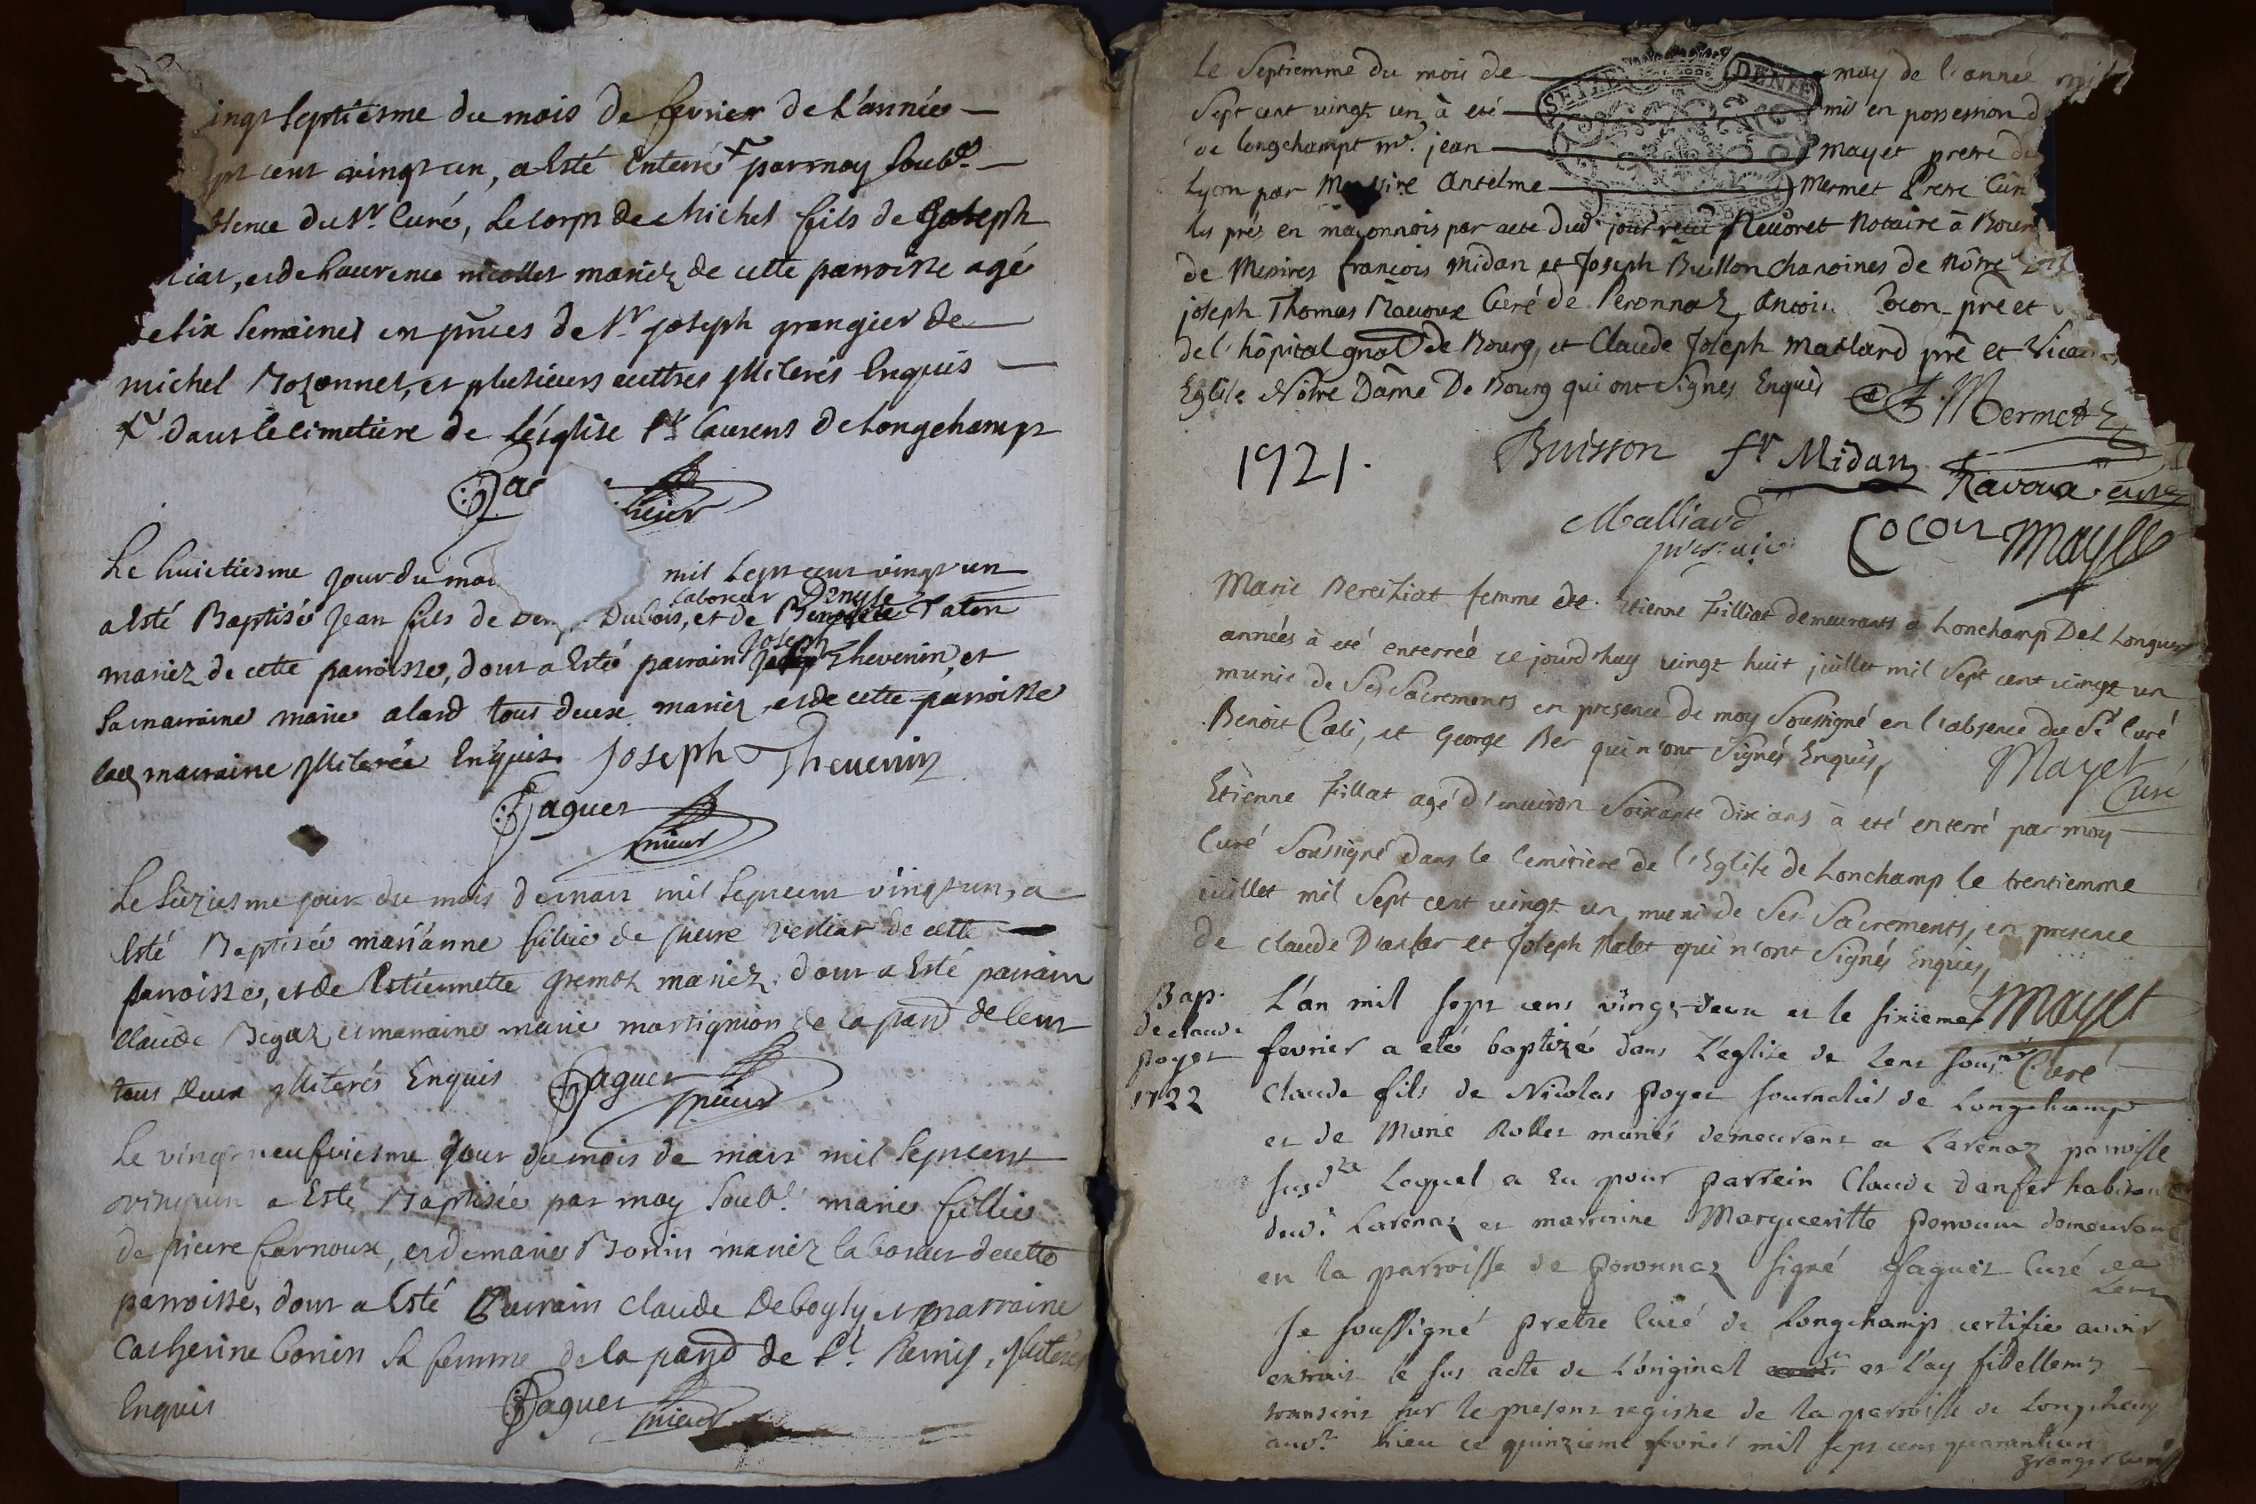 septiesme du mois de fevrier de L'année
cent vingt un, a Esté Enterré par moy soub.
du Sr. Curé, Le corps de Michel fils de Joseph
et de Laurence nicollet mariez de cette parroisse agé
de six semaines en pnces de Sr. joseph grangier de
michel Rozonnet, et plusieurs autres jlliterés Enquis
dans le cimetiere de L'église St Laurens de Longchamps
Le huictiesme jour du mil sept cent vingt un
laboreur Denyse
a Esté Baptisé Jean fils de Dubois, et de Paton
mariez de cette parroisse, dont a Esté parrain Joseph Thevenin, et
sa marraine marie alard tous deux mariez et de cette parroisse
lad marraine jlliterée Enquis. Joseph Thevenin
Jaguet
prieur
Le seiziesme jour du mois de mars mil sept cent vingt un, a
Esté Baptisée mariánne fillie de pierre verliat de cette
parroisse, et de Estiennette gremoz mariez dont a Esté parrain
Claude Begoz et marraine marie martignion de la parr de Lent
tous deux jlliterés Enquis Jaguet
prieur
Le vingt neufviesme Jour du mois de mars mil sept cent
vingt un a Esté Baptisée par moy soub. marie fillie
de pierre farnoux, et de marie Bonin mariez laboreur de cette
parroisse, dont a Esté Parrain Claude Debogly et marraine
Catherine bonin sa femme de la parr de St. Remy, jlliterés
Enquis Jaguet
prieur
Le Septiemme du mois de may de l'année
SEIZE DENIE
Sept cent vingt un à eté mis en possession
de Longchampt mr. jean Mayet pretre
Lyon par Antelme Mermet Pretre
les prés en maçonnois par acte dud. jour reçu Revoret Notaire à
de Messires françois Midan et Joseph Buisson chanoines de Nôtre
joseph Thomas Ravoux Curé de Peronnaz, Cocon prê et
de l'hôpital gnal de Bourg, et Claude Joseph Maillard prê et
Eglise Nôtre Dame De Bourg qui ont Signés Enquis Mermet
1721. Buisson fr Midan Ravoux curé
Malliard Cocon Mayet
Marie Bereiziat femme de Etienne Filliat demeurants a Lonchamp
années à eté enterreé ce jourd'huy vingt huit juillet mil Sept cent vingt un
munie de Ses Sacrements en presence de moy Soussigné en l'absence du Sr. Curé
Benoit Cali, et George Ber qui n'ont Signés Enquis,
Mayet
Curé
Etienne Fillat agé d'environ Soixante dix ans à eté enterré par moy
Curé Soussigné dans le Cemitiere de l'Eglise de Lonchamp le trentiemme
juillet mil Sept cent vingt un, muni de Ses Sacrements, en presence
de Claude et Joseph Rolet qui n'ont Signés Enquis,
Mayet
Curé
Bap.
de claude
poyet
1722
L'an mil sept cens vingt-deux et le sixieme
fevrier a eté baptizé dans L'eglise de Lent sous
Claude fils de Nicolas poyet journalié de Longchamp
et de Marie Rollet mariés demeurant a Larenaz parroisse
susd.te Lequel a eu pour parrein Claude danfer habitant
dud. Larenaz et marreine Margueritte demeurant
en la parroisse de peronnaz signé Jaguet Curé
Lent
Je soussigné pretre Curé de Longchamp certifie avoir
extrait le sus acte de L'original et L'ay fidellemt
transcrit sur le present registre de la parroisse de Longchamp
aud. Lieu ce quinzieme fevrier mil sept cens quarante un
granger curé